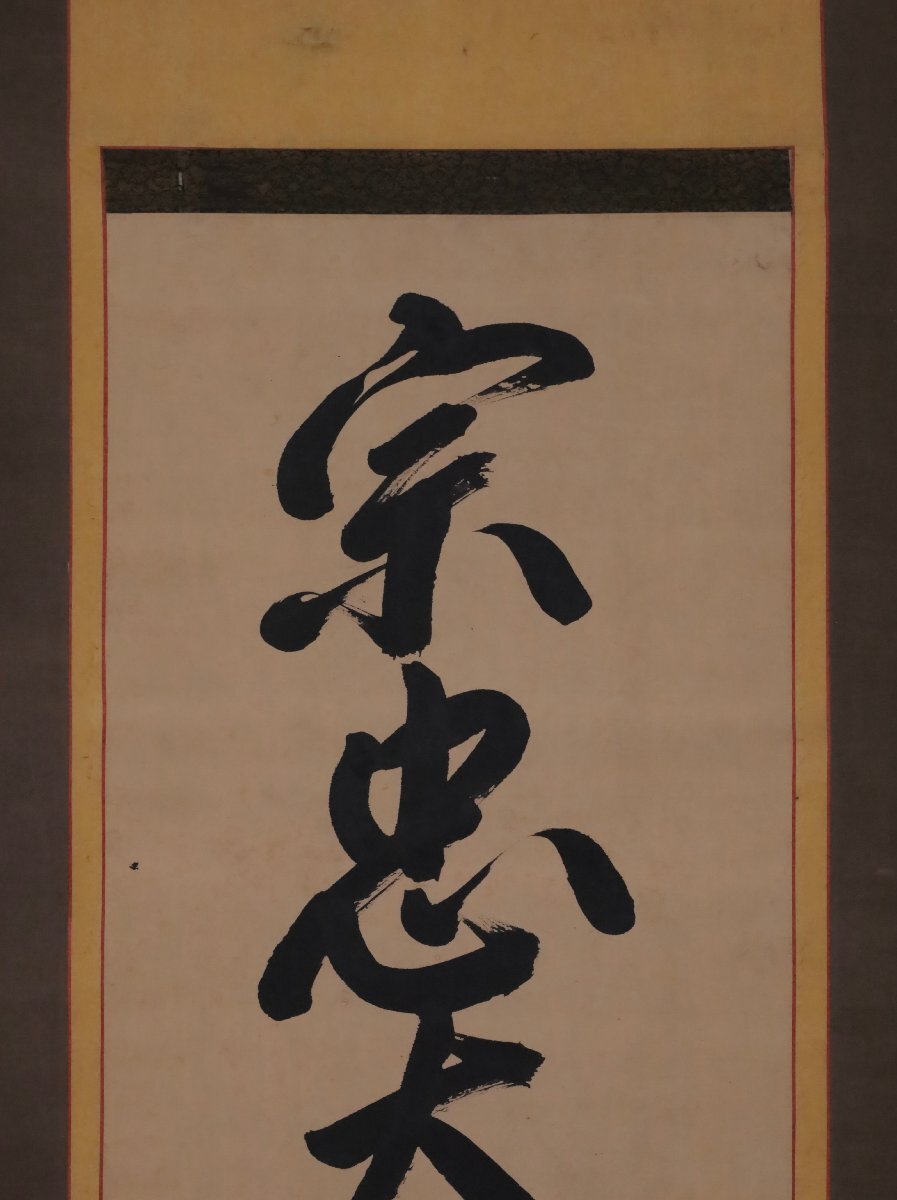 宗忠大